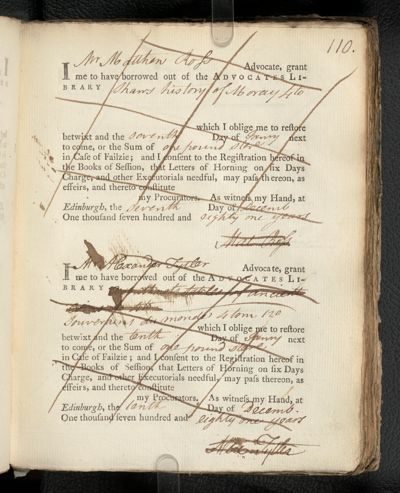 110.
I Mr Matthew Ross Advocate, grant
me to have borrowed out of the ADVOCATES LI-
BRARY Shaws history of Moray 4to
which I oblige me to reſtore
betwixt and the seventh Day of Janry next
to come, or the Sum of one pound ster.
in Caſe of Failzie; and I conſent to the Regiſtration hereof in
the Books of Seſſion, that Letters of Horning on ſix Days
Charge, and other Executorials needful, may paſs thereon, as
effeirs, and thereto conſtitute
my Procurators. As witneſs my Hand, at
Edinburgh, the Seventh Day of Decemb.
One thouſand ſeven hundred and eighty one years
Matt. Ross
I Mr Alexander Tytler Advocate, grant
me to have borrowed out of the ADVOCATES LI-
BRARY
Souverains du monde 4 tom 12o
which I oblige me to reſtore
betwixt and the tenth Day of Janry next
to come, or the Sum of one pound ster.
in Caſe of Failzie; and I conſent to the Regiſtration hereof in
the Books of Seſſion, that Letters of Horning on ſix Days
Charge, and other Executorials needful, may paſs thereon, as
effeirs, and thereto conſtitute
my Procurators. As witneſs my Hand, at
Edinburgh, the tenth Day of Decemb.
One thouſand ſeven hundred and eighty one years
Tytler